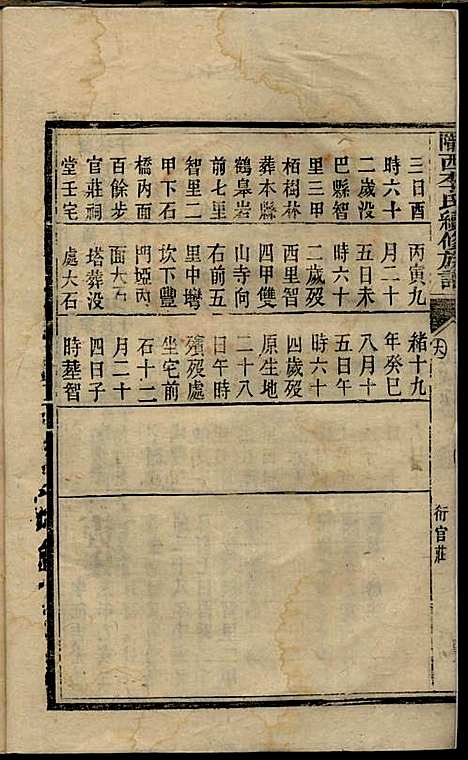 隴西李氏續修族譜
衍官莊
三日酉
時六十
二歲没
巴縣智
里三甲
栢樹林
葬本縣
鶴臯岩
前七里
智里二
甲下石
橋丙面
百餘步
官莊祠
堂壬宅
丙寅九
月二十
五日未
時六十
二歲殁
西里智
四甲雙
山寺向
右前五
里中
坎下豐
門埡丙
面大五
塔葬没
處大石
緒十九
年癸巳
八月十
五日午
時六十
四歲殁
原生地
二十八
日午時
殯殁處
坐宅前
石十二
月二十
四日子
時塟智